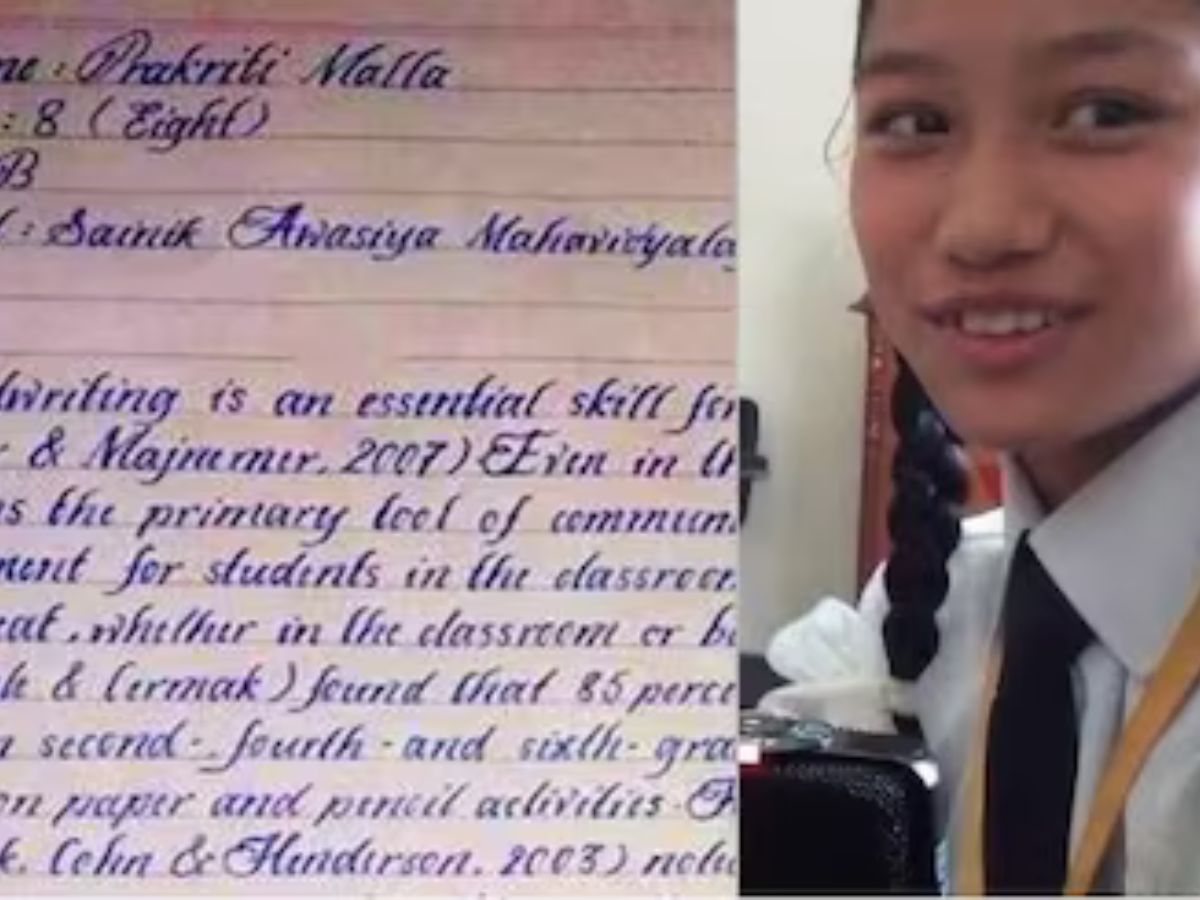 me : Prakriti Malla
: 8 (Eight)
B
l : Sainik Awasiya Mahavidyala
dwriting is an essential skill for
& Majnemer, 2007) Even in th
as the primary tool of commun
ment for students in the classroom
eat, whether in the classroom or b
k & Cermak) found that 85 perce
n second-, fourth-and sixth-gra
on paper and pencil activities.
k, Cohn & Henderson, 2003) note